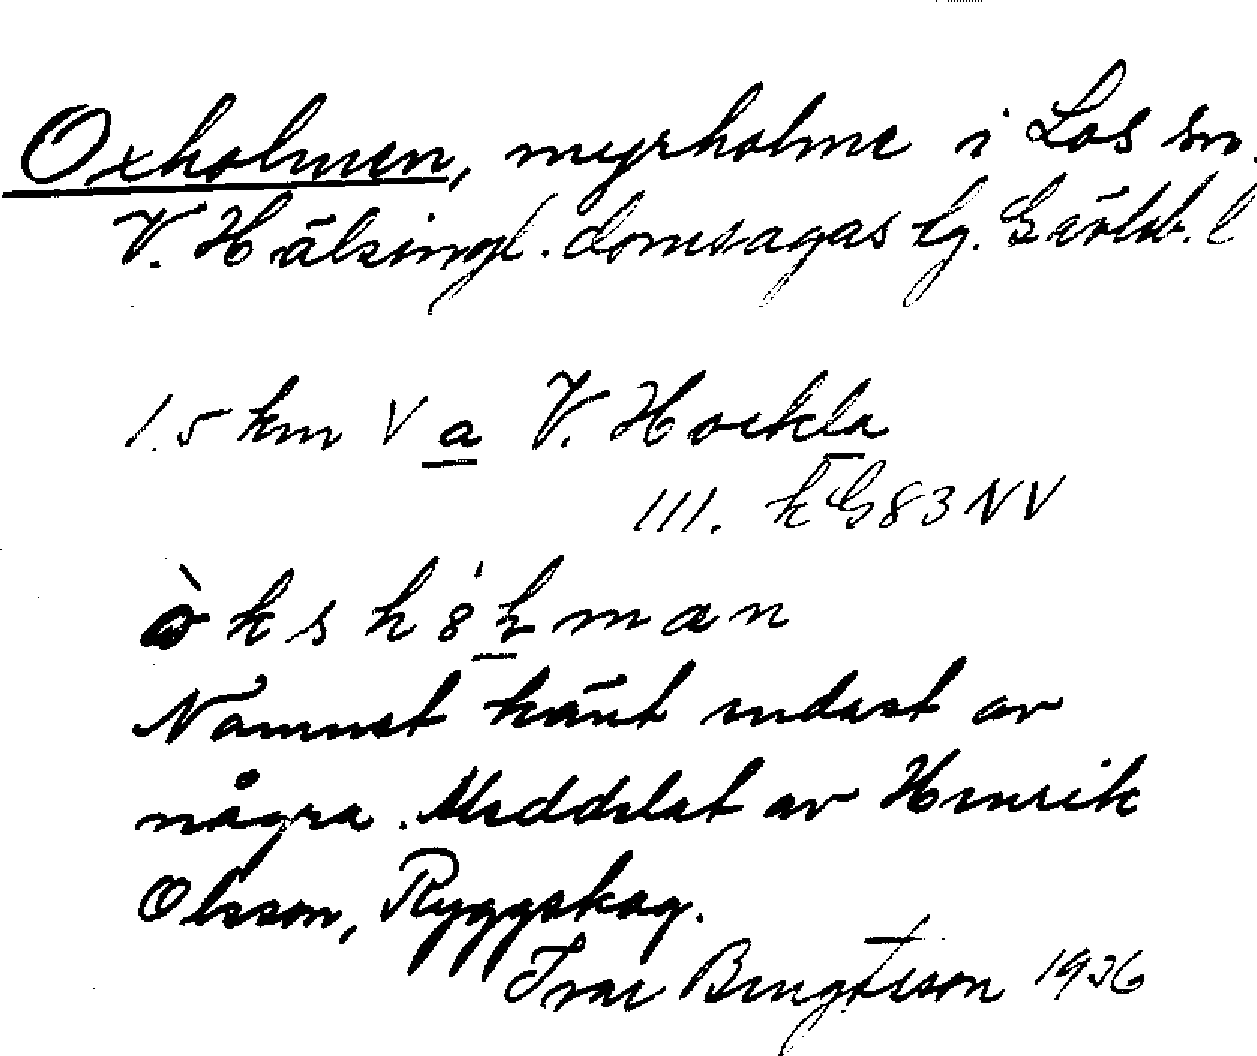 Oxholmen, myrholme i Los sn.
V. Hälsingl. domsagas tg. Gävleb. l
1.5 km V a V. Hockla
111. k G83NV
Namnet känt endast av
några. Meddelat av Henrik
Olsson, Ryggskog.
Ivar Bengtsson 1936